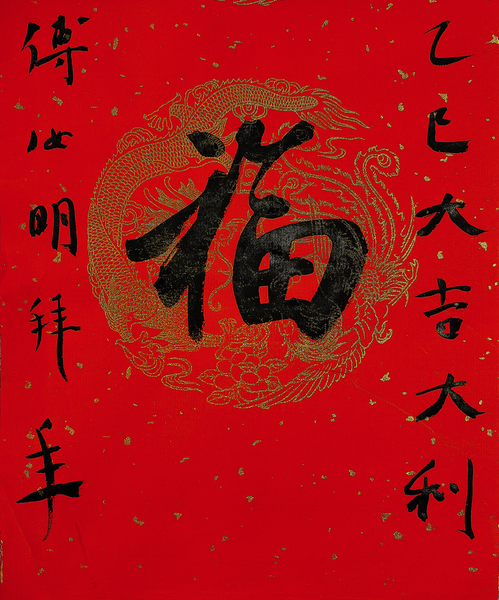 乙巳大吉大利
福
傅明拜年